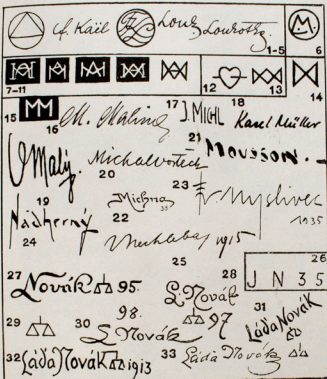 Louk Lourotka.
1-5 6
7-11 12 13 14
15 MM 16 M. Malina 17 J. MICHL 18 Karel Müller
O Malý. 19
Michal Vorlech 20
21 Mousson.
Michna 35 22
23 Fr Myslivec 1935
Nádherný 24
1915 25
26 J N 35
27 Novák 95
28 L. Novák 97
29
30 98. L. Novák
31 Láďa Novák
32 Láďa Novák 1913
33 Láďa Novák